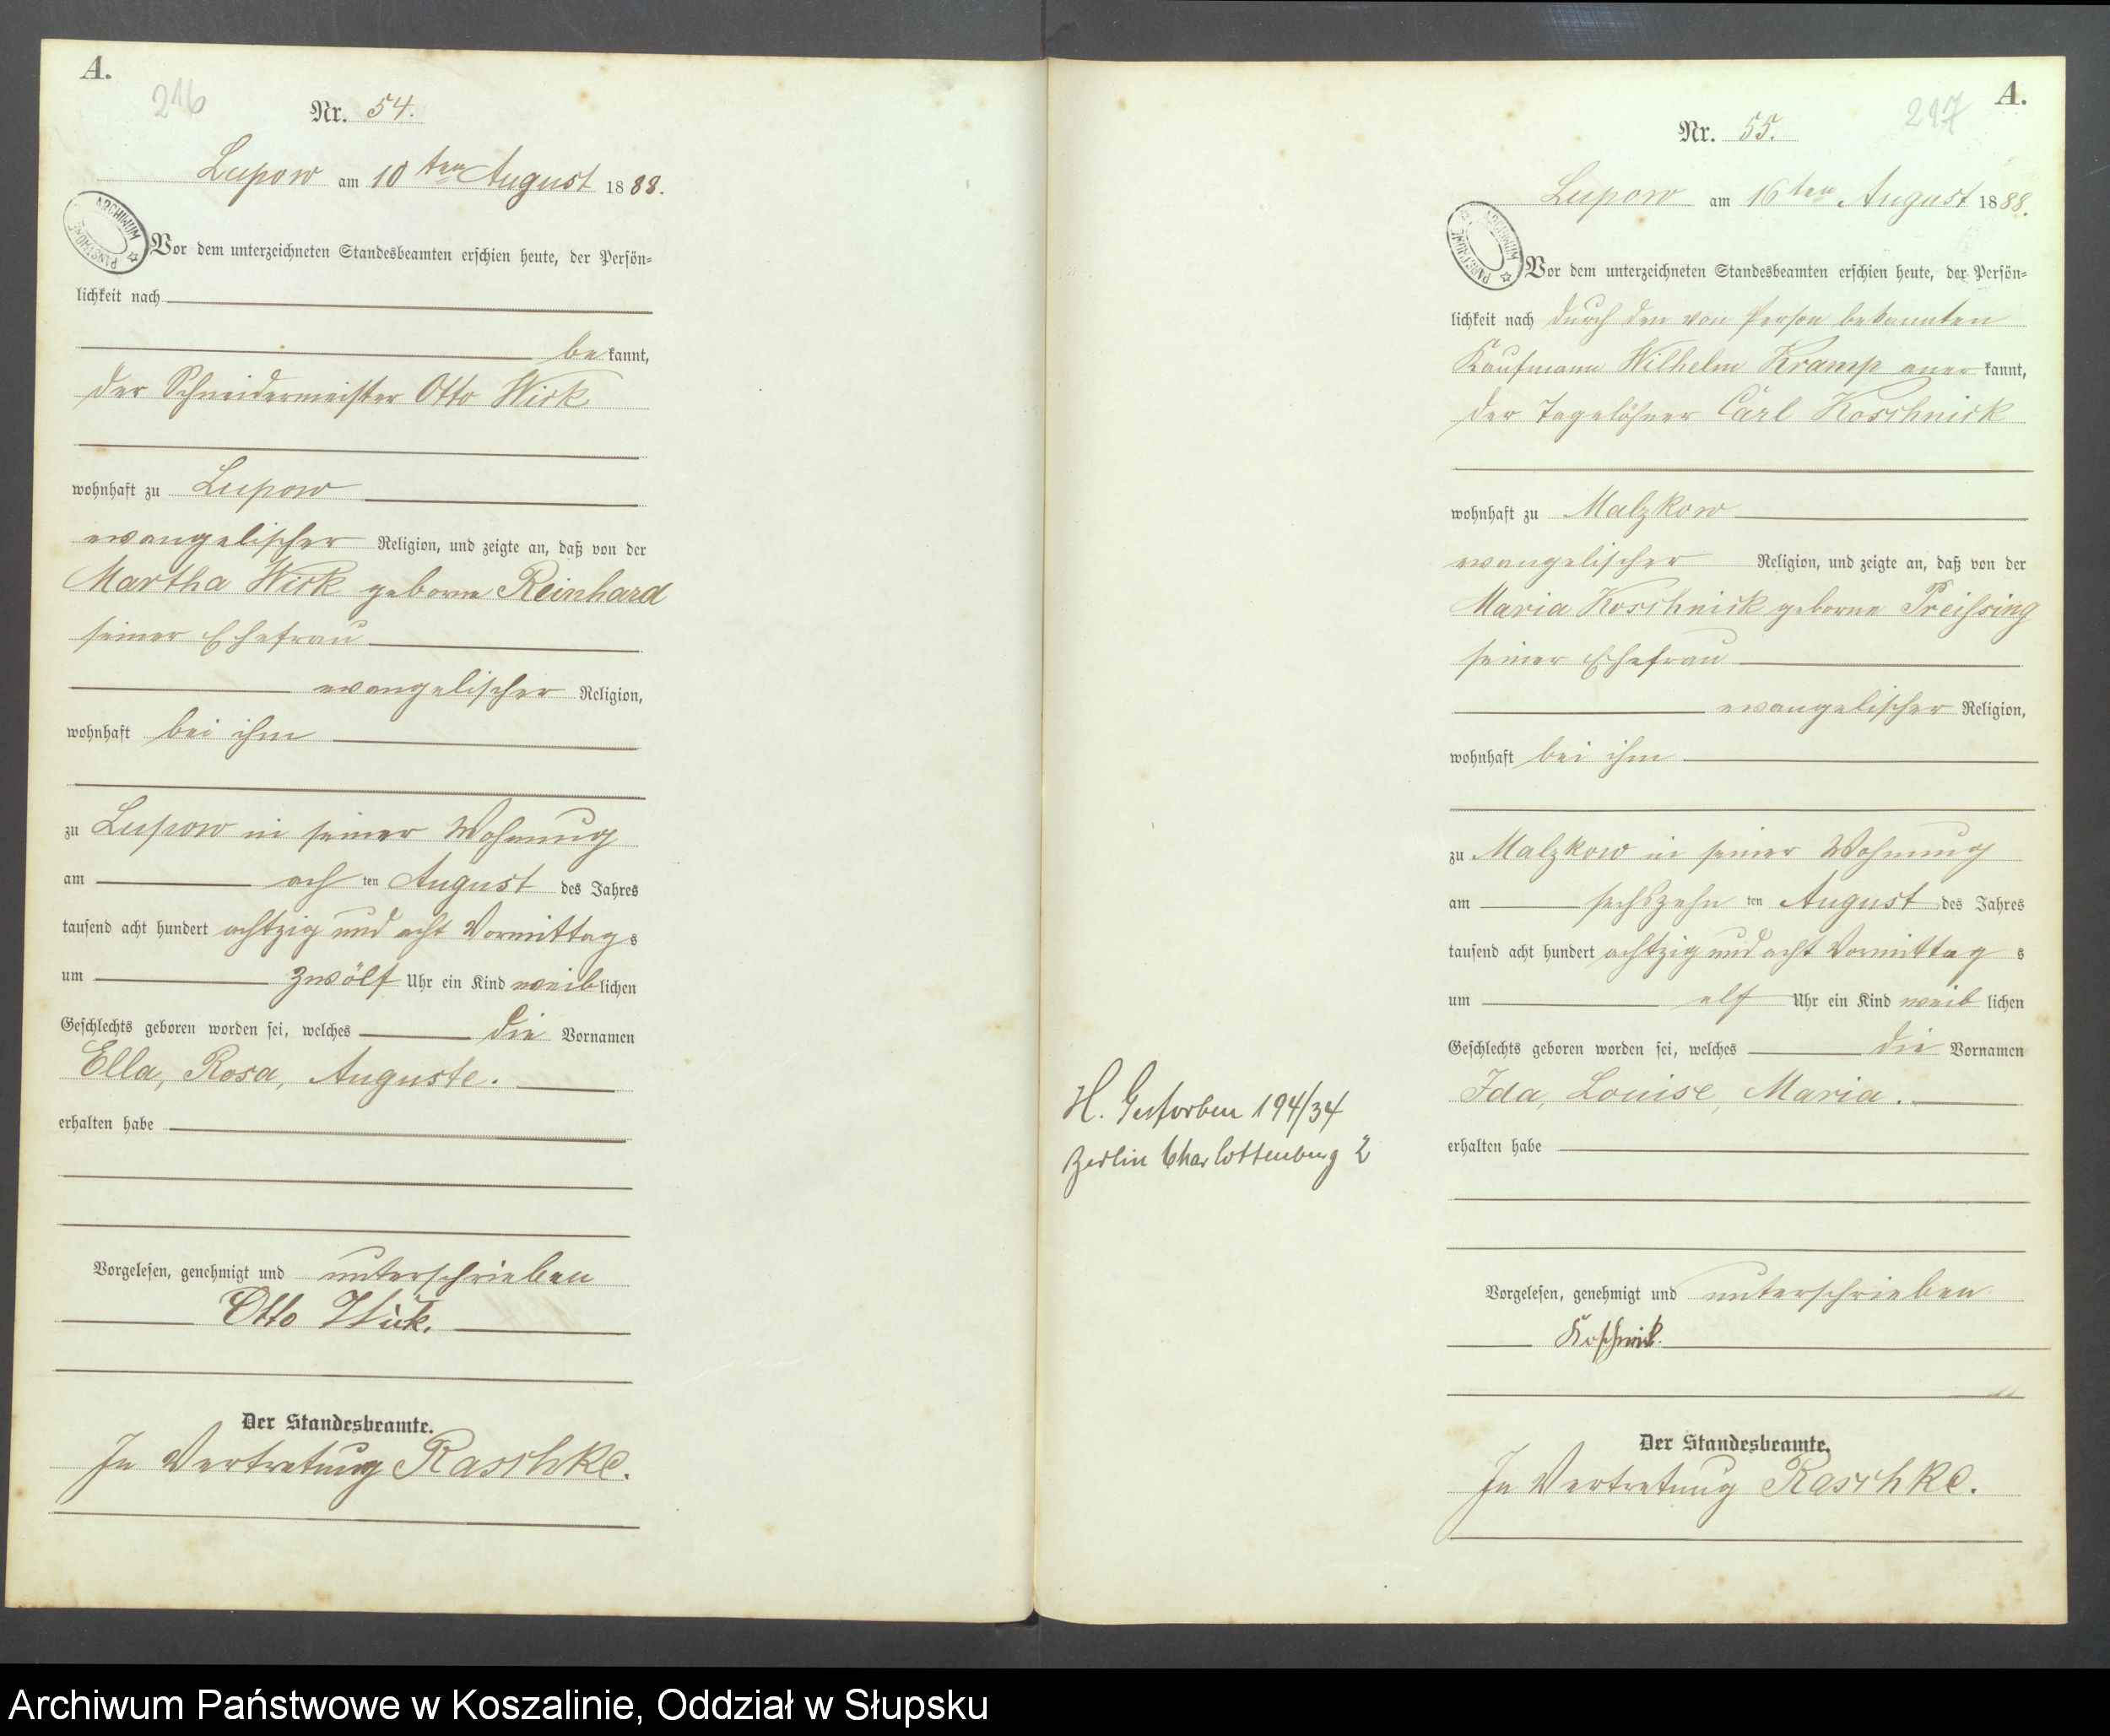 A.
216
Nr. 54.
Lupow am 10ten August 1888.
ARCHIWUM PAŃSTWOWE
Vor dem unterzeichneten Standesbeamten erschien heute, der Persön-
lichkeit nach
be kannt,
der Schneidermeister Otto Wick
wohnhaft zu Lupow
evangelischer Religion, und zeigte an, daß von der
Martha Wick geborne Reinhard
seiner Ehefrau
evangelischer Religion,
wohnhaft bei ihm
zu Lupow in seiner Wohnung
am ach ten August des Jahres
tausend acht hundert achtzig und acht Vormittags
um zwölf Uhr ein Kind weiblichen
Geschlechts geboren worden sei, welches die Vornamen
Ella, Rosa, Auguste.
erhalten habe
Vorgelesen, genehmigt und unterschrieben
Otto Wick.
Der Standesbeamte.
In Vertretung Raschke.
A.
217
Nr. 55.
Lupow am 16ten August 1888.
ARCHIWUM PAŃSTWOWE
Vor dem unterzeichneten Standesbeamten erschien heute, der Persön-
lichkeit nach durch den von Person bekannten
Kaufmann Wilhelm Kramp aner kannt,
der Tagelöhner Carl Koschnick
wohnhaft zu Malzkow
evangelischer Religion, und zeigte an, daß von der
Maria Koschnick geborne Preissing
seiner Ehefrau
evangelischer Religion,
wohnhaft bei ihm
zu Malzkow in seiner Wohnung
am sechszehn ten August des Jahres
tausend acht hundert achtzig und acht Vormittag s
um elf Uhr ein Kind weib lichen
Geschlechts geboren worden sei, welches die Vornamen
Ida, Louise, Maria.
erhalten habe
H. Gestorben 194/34
Berlin Charlottenburg 2
Vorgelesen, genehmigt und unterschrieben
Koschnick.
Der Standesbeamte.
In Vertretung Raschke.
Archiwum Państwowe w Koszalinie, Oddział w Słupsku